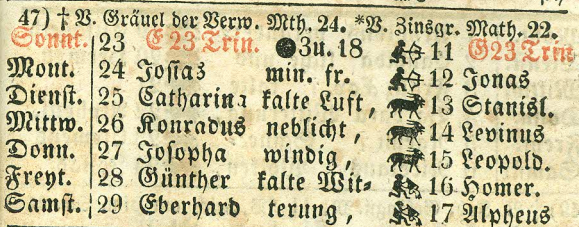 47) † V. Gräuel der Verw. Mth. 24. *V. Zinsgr. Math. 22.
Sonnt. 23 E 23 Trin. 3u. 18 11 G23 Trin
Mont. 24 Josias min. fr. 12 Jonas
Dienst. 25 Catharina kalte Luft, 13 Stanisl.
Mittw. 26 Konradus neblicht, 14 Levinus
Donn. 27 Josopha windig, 15 Leopold.
Freyt. 28 Günther kalte Wit= 16 Homer.
Samst. 29 Eberhard terung, 17 Alpheus